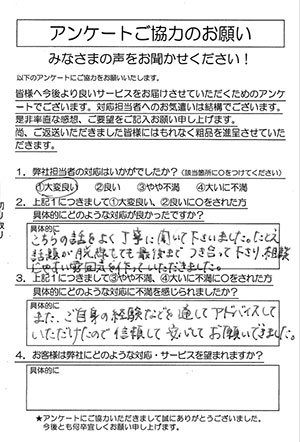 アンケートご協力のお願い
みなさまの声をお聞かせください!
以下のアンケートにご協力をお願いいたします。
皆様へ今後より良いサービスをお届けさせていただくためのアンケ
ートでございます。対応担当者へのお気遣いは結構でございます。
是非率直な感想、ご要望をご記入お願い申し上げます。
尚、ご返送いただきました皆様にはもれなく粗品を進呈させていた
だきます。
1.弊社担当者の対応はいかがでしたか?(該当箇所に○をつけてください)
①大変良い ②良い ③やや不満 ④大いに不満
2.上記1につきまして①大変良い、②良いに○をされた方
具体的にどのような対応が良かったですか?
具体的に
こちらの話をよく丁寧に聞いて下さいました。たとえ
話題が脱線しても最後までつき合って下さり、相談
しやすい雰囲気を作っていただきました。
3.上記1につきまして③やや不満、④大いに不満に○をされた方
具体的にどのような対応に不満を感じられましたか?
具体的に
また、ご自身の経験などを通してアドバイスして
いただけたので信頼して安心してお願いできました。
4.お客様は弊社にどのような対応・サービスを望まれますか?
具体的に
★アンケートにご協力いただきまして誠にありがとうございました。
今後とも何卒宜しくお願い申し上げます。
切り取り